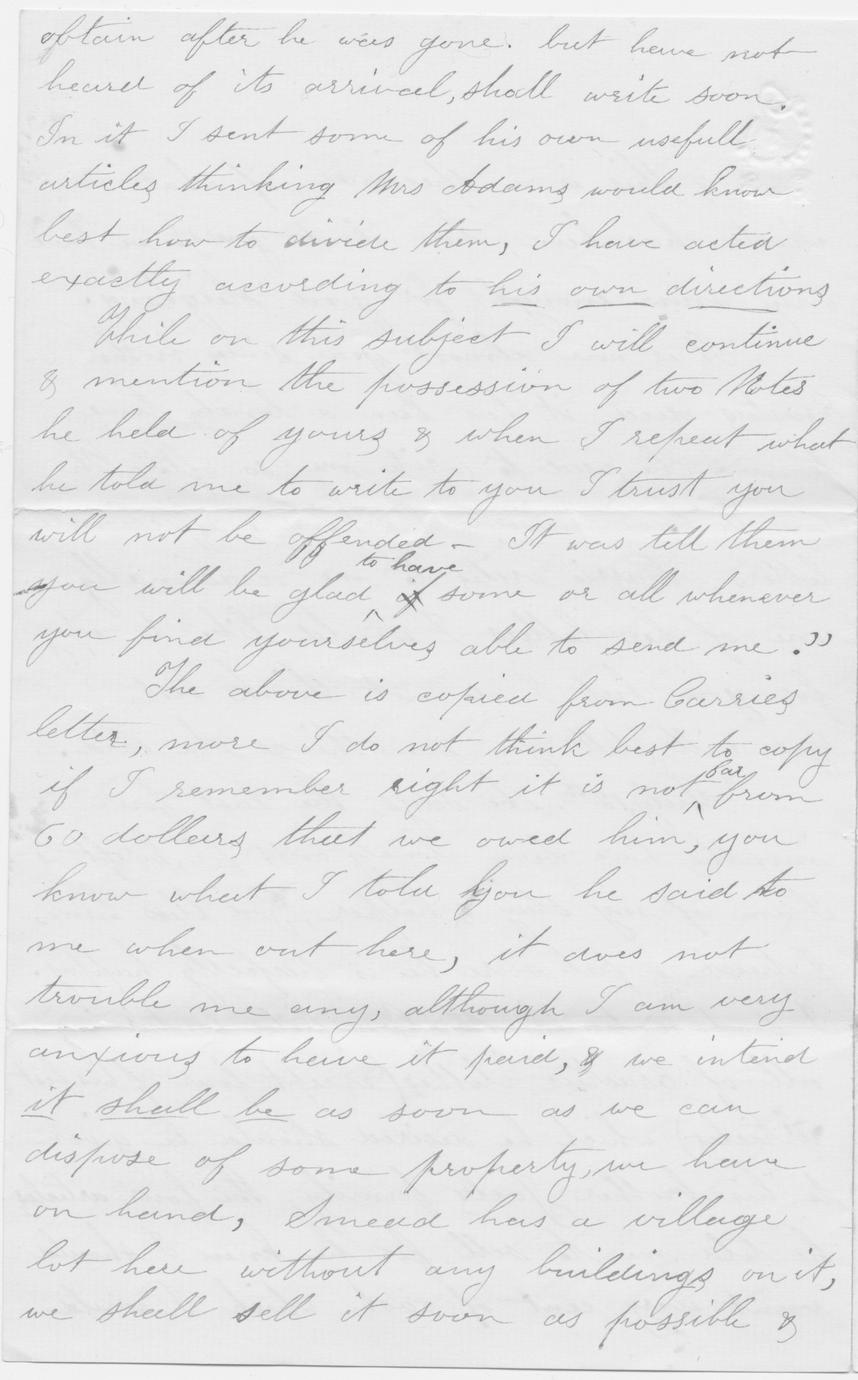 obtain after he was gone. but have not
heard of its arrival, shall write soon.
In it I sent some of his own usefull
articles thinking Mrs Adams would know
best how to divide them, I have acted
exactly according to his own directions
While on this subject I will continue
& mention the possession of two Notes
he held of yours & when I repeat what
he told me to write to you I trust you
will not be offended – It was tell them
you will be glad to have some or all whenever
you find yourselves able to send me ."
The above is copied from Carries
letter, more I do not think best to copy
if I remember right it is not far from
60 dollars that we owed him, you
know what I told you he said to
me when out here, it does not
trouble me any, although I am very
anxious to have it paid, & we intend
it shall be as soon as we can
dispose of some property, we have
on hand, Smead has a village
lot here without any buildings on it,
we shall sell it soon as possible &